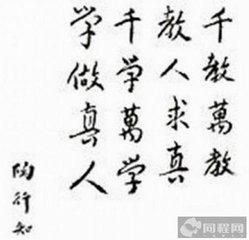 千教萬教
教人求真
千学萬学
学做真人
陶行知
同程网